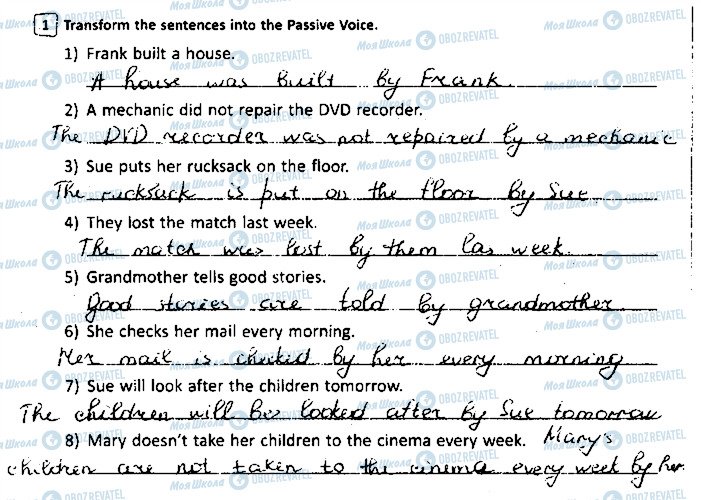 1 Transform the sentences into the Passive Voice.
1) Frank built a house.
A house was built by Frank.
2) A mechanic did not repair the DVD recorder.
The DVD recorder was not repaired by a mechanic
3) Sue puts her rucksack on the floor.
The rucksack is put on the floor by Sue.
4) They lost the match last week.
The match was lost by them las week.
5) Grandmother tells good stories.
good stories are told by grandmother.
6) She checks her mail every morning.
Her mail is checked by her every morning
7) Sue will look after the children tomorrow.
The children will be looked after by Sue tomorrow
8) Mary doesn't take her children to the cinema every week. Mary's
children are not taken to the cinema every week by her.
Моя Школа OBOZREVATEL